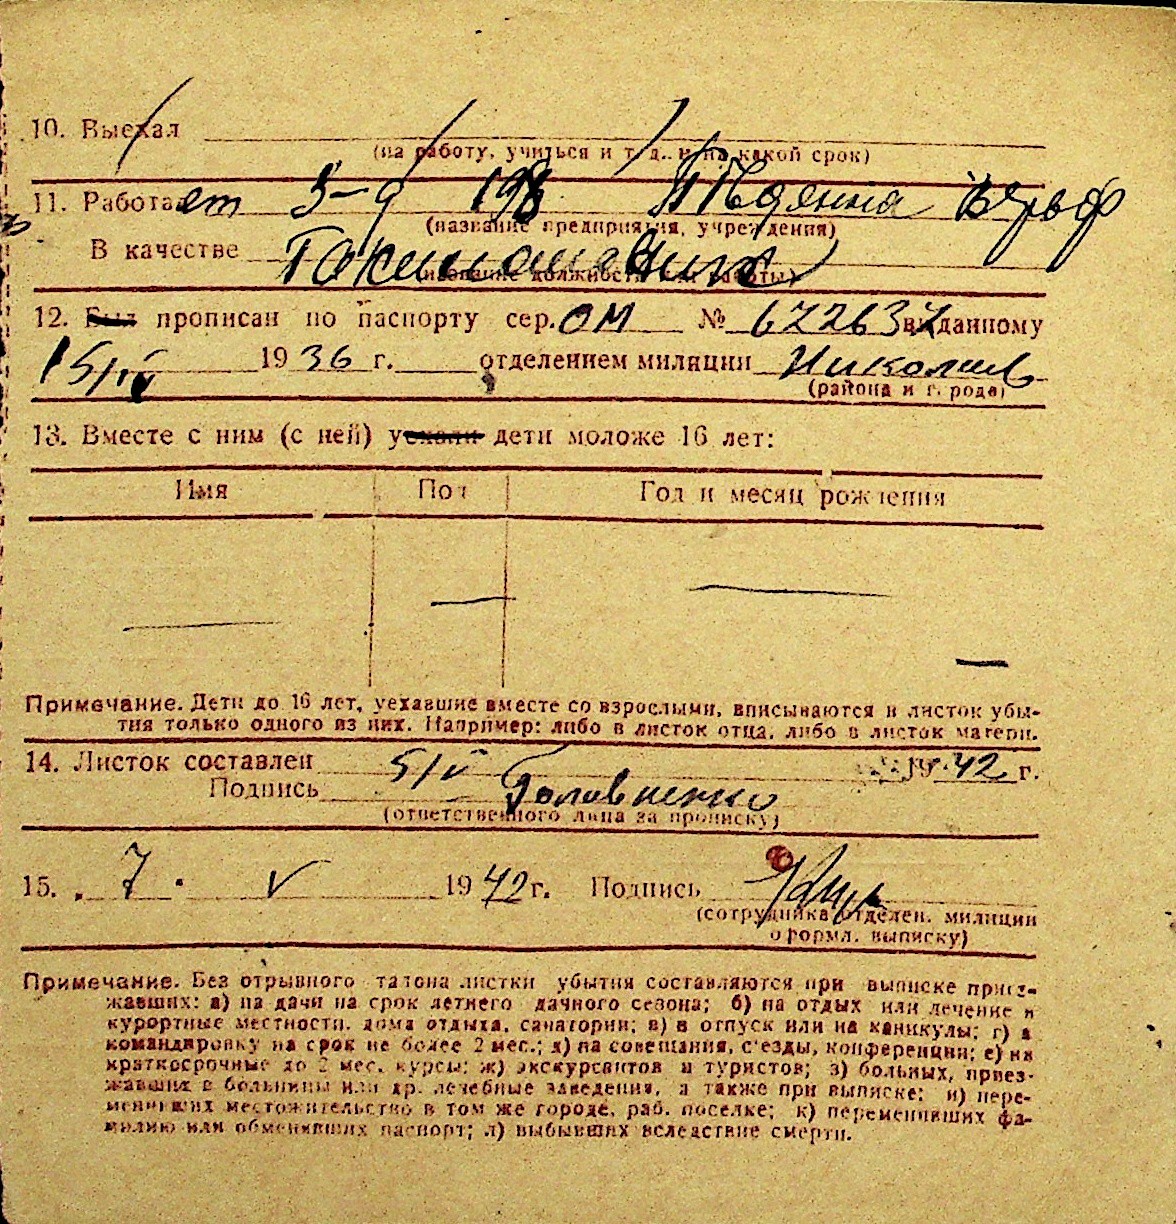 10. Выехал
(на работу, учиться и т. д. и на какой срок)
11. Работает
(название предприятия, учреждения)
В качестве
(название должности или работы)
12. Был прописан по паспорту сер. ОМ № 672637 выданному
15/IV 1936 г. отделением милиции Николаев
(района и города)
13. Вместе с ним (с ней) уехали дети моложе 16 лет:
Имя Пол Год и месяц рождения
Примечание. Дети до 16 лет, уехавшие вместе со взрослыми, вписываются в листок убы-
тия только одного из них. Например: либо в листок отца, либо в листок матери.
14. Листок составлен 5/V 1942 г.
Подпись Головненко
(ответственного лица за прописку)
15. 7 V 1942 г. Подпись
(сотрудника отделен. милиции
оформл. выписку)
Примечание. Без отрывного талона листки убытия составляются при выписке приез-
жавших: а) на дачи на срок летнего дачного сезона; б) на отдых или лечение в
курортные местности, дома отдыха, санатории; в) в отпуск или на каникулы; г) в
командировку на срок не более 2 мес.; д) на совещания, с'езды, конференции; е) на
краткосрочные до 2 мес. курсы; ж) экскурсантов и туристов; з) больных, приез-
жавших в больницы или др. лечебные заведения, а также при выписке; и) пере-
менивших местожительство в том же городе, раб. поселке; к) переменивших фа-
милию или обменивших паспорт; л) выбывших вследствие смерти.